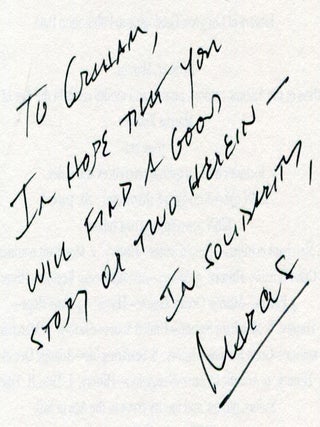 TO GRAHAM,
IN HOPE THAT YOU
WILL FIND A GOOD
STORY OR TWO HEREIN —
IN SOLIDARITY,
Marcus